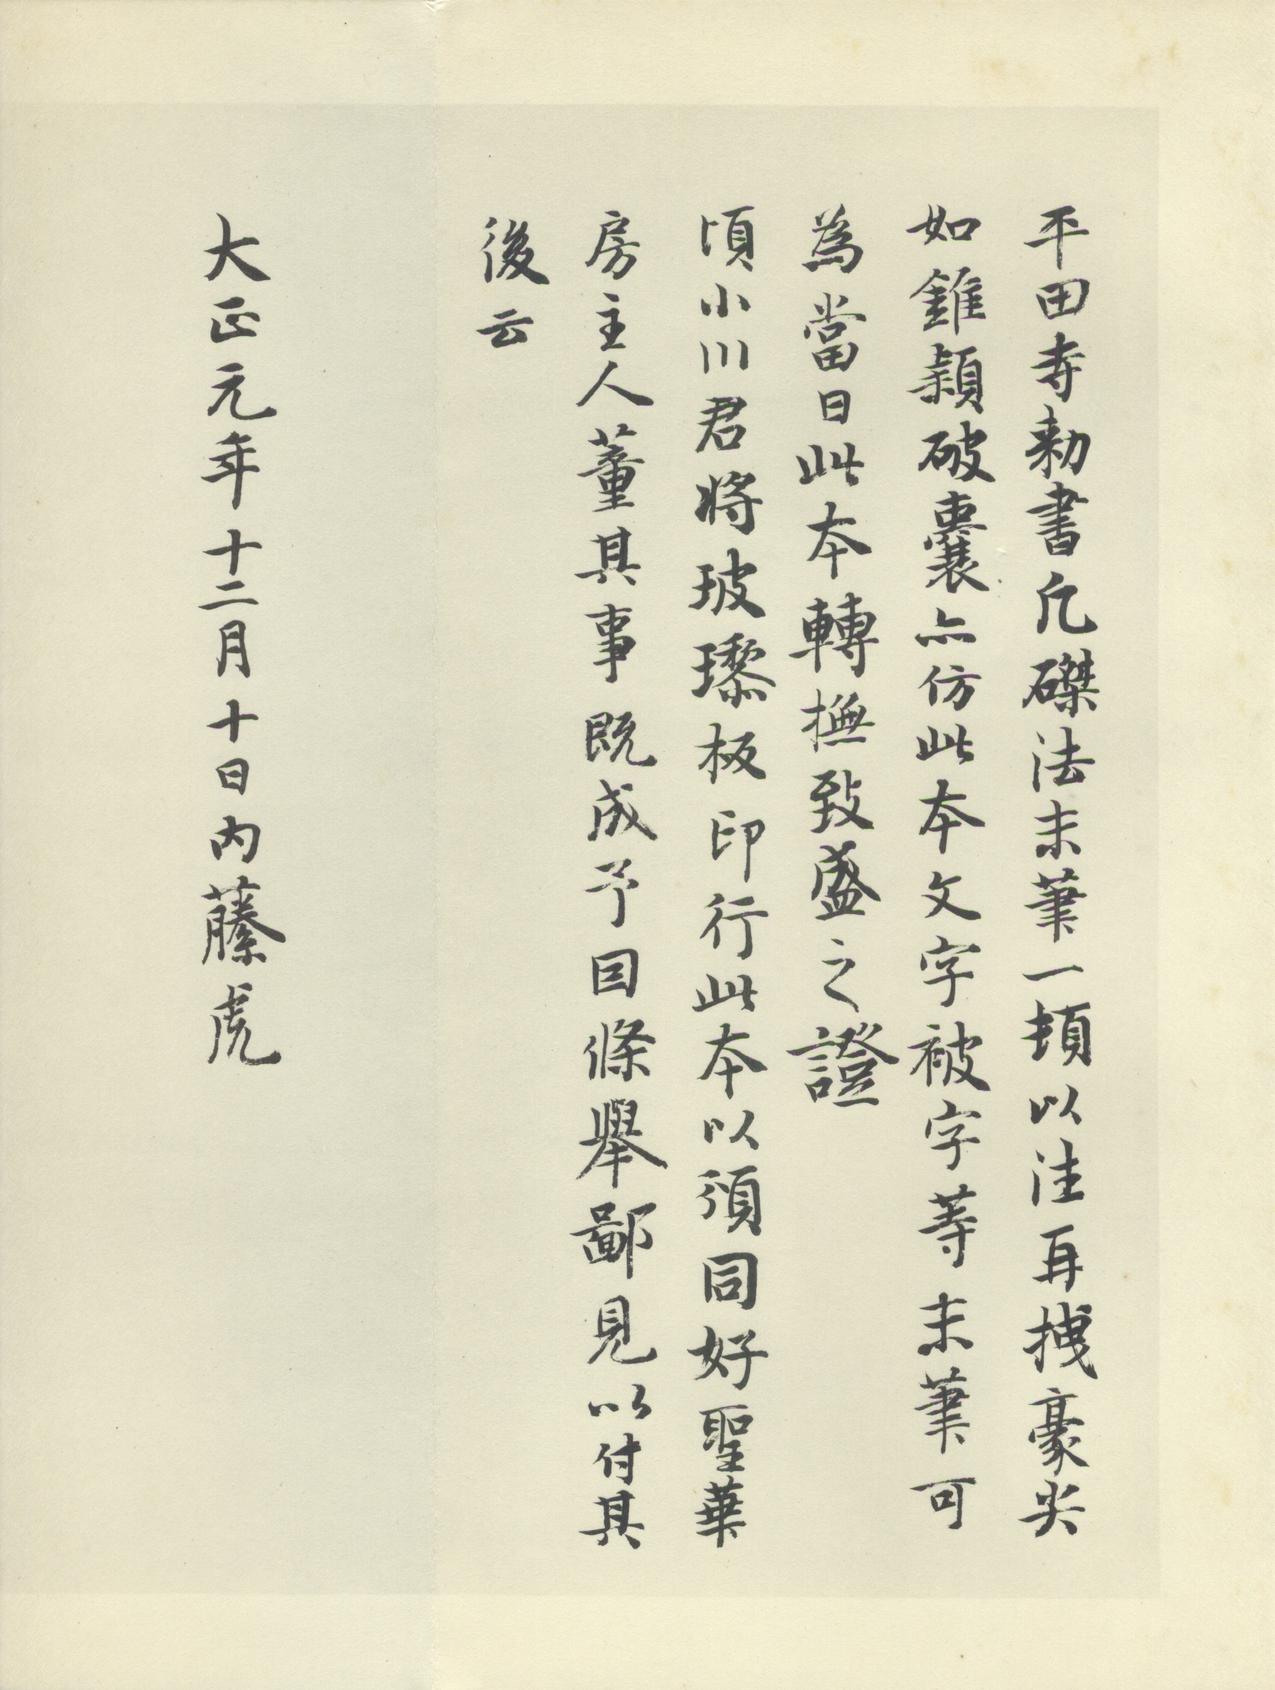 平田寺勅書凡磔法末筆一頓以注再拽豪尖
如錐穎破囊亦仿此本文字被字等末筆可
為當日此本轉撫致盛之證
頃小川君將玻瓈板印行此本以頒同好聖華
房主人董其事既成予因條舉鄙見以付其
後云
大正元年十二月十日內藤虎